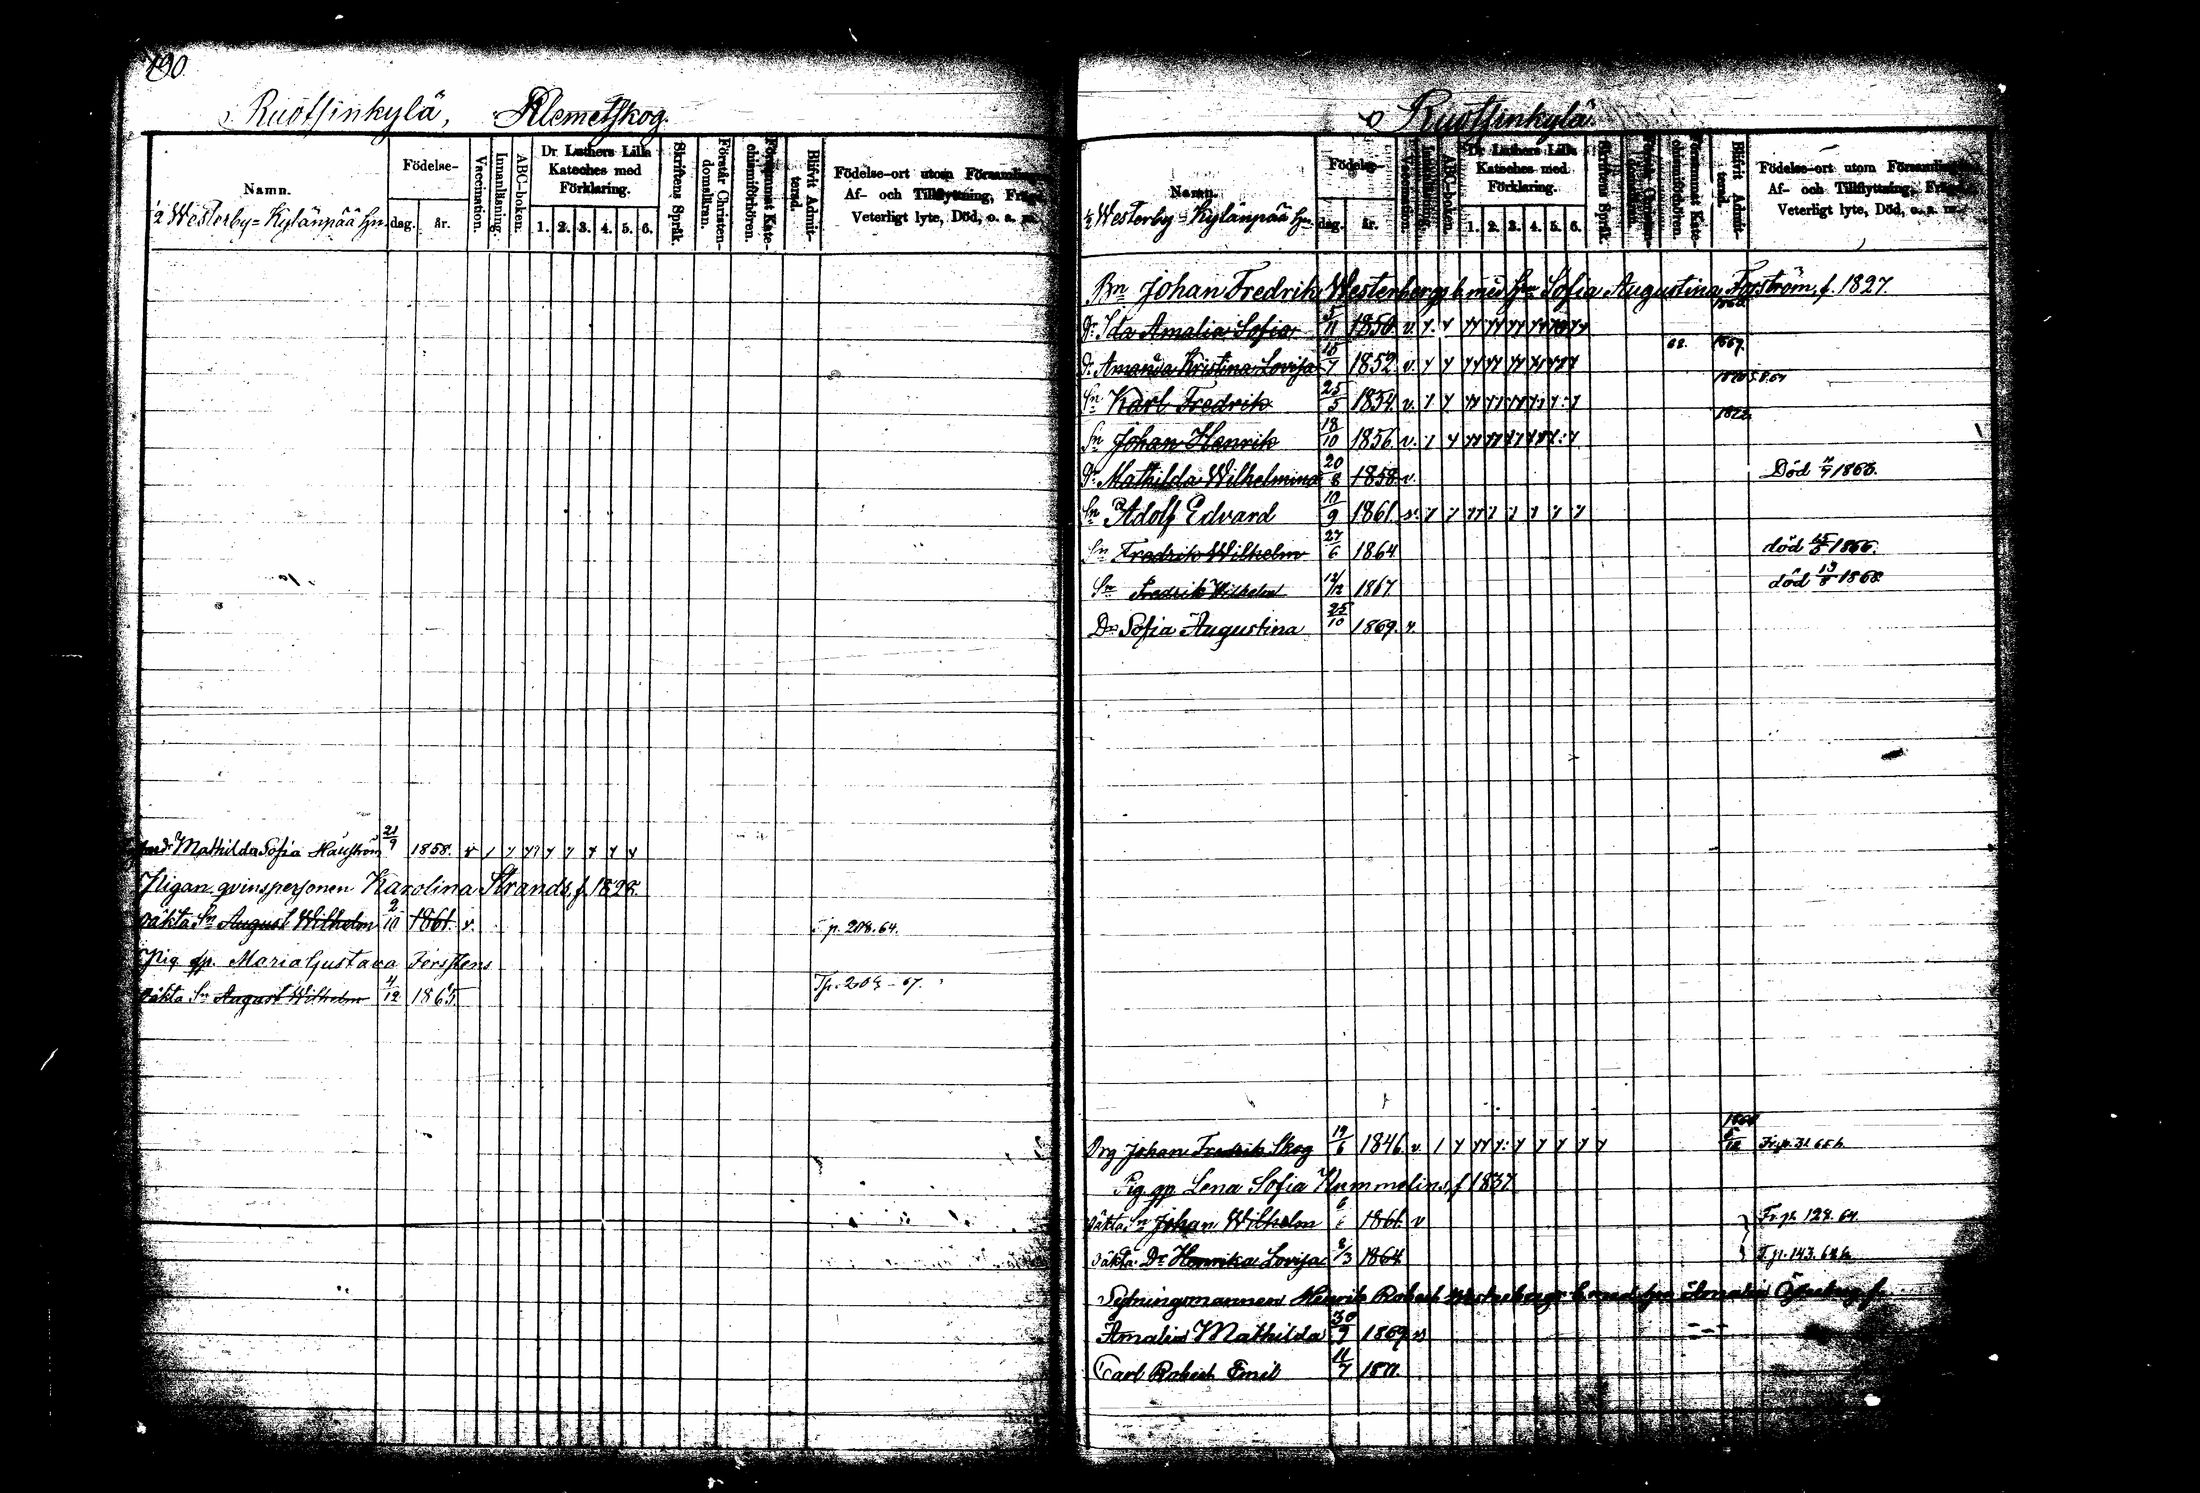 190.
Ruotsinkylä, Klemetskog.
Namn.
1/2 Westerby=Kylänpää Hn.
Födelse-
dag. år.
Vaccination.
Innanläsning.
ABC-boken.
Dr Luthers Lilla Kateches med Förklaring.
1. 2. 3. 4. 5. 6.
Skriftens Språk.
Förstår Christendomsläran.
Försummat Katechismiförhören.
Blifvit Admitterad.
Födelse-ort utom Församlingen,
Af- och Tillflyttning, Frägd,
Veterligt lyte, Död, o. a. m.
Mathilda Sofia 21/9 1858. v
Pigan qvinspersonen Karolina Strands, f. 1828.
oäkta Sn August Wilhelm 2/10 1861. v.
p. 208. 64.
Pig. qp. Maria Gustava
oäkta Sn August Wilhelm 4/12 1865.
Ruotsinkylä
Namn.
1/2 Westerby=Kylänpää Hn
Födelse-
dag. år.
Vaccination.
Innanläsning.
ABC-boken.
Dr Luthers Lilla Kateches med Förklaring.
1. 2. 3. 4. 5. 6.
Skriftens Språk.
Förstår Christendomsläran.
Försummat Katechismiförhören.
Blifvit Admitterad.
Födelse-ort utom Församlingen,
Af- och Tillflyttning, Frägd,
Veterligt lyte, Död, o. a. m.
Bn Johan Fredrik Westerbergs b. med Hu Sofia Augustina Forström, f. 1827.
Dr Ida Amalia Sofia 5/11 1850. v.
Dr Amanda Kristina Lovisa 15/7 1852. v. 68. 1869.
Sn Karl Fredrik 25/5 1854. v.
Sn Johan Henrik 18/10 1856. v.
Dr Mathilda Wilhelmina 20/8 1858. v. Död 1866.
Sn Adolf Edvard 10/9 1861. v.
Sn Fredrik Wilhelm 27/6 1864 död 1866.
Sn Fredrik Wilhelm 12/12 1867 död 19/8 1868
Dr Sofia Augustina 25/10 1869. v.
Drg Johan Fredrik Skog 19/6 1846. v.
Pig. qp. Lena Sofia Kummelins, f 1837
oäkta Sn Johan Wilhelm 1861. v Fr. p. 128. 64.
oäkta Dr Henrika Lovisa 8/3 1864
Sytningsmannen Henrik Robert
Amalia Mathilda 30/9 1869. v
Carl Robert Emil 11/7 1871.